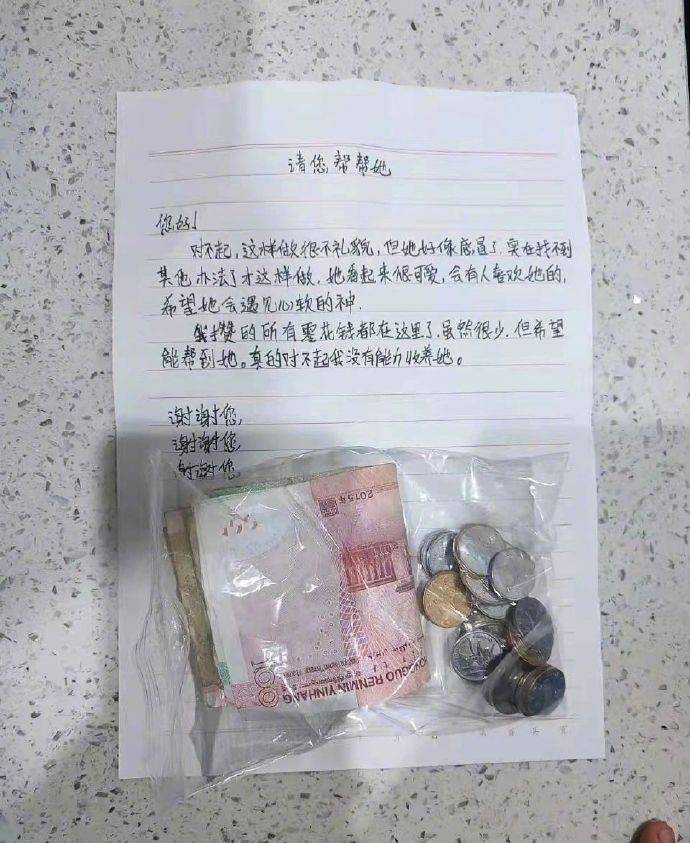 请您帮帮她
您好!
对不起,这样做很不礼貌,但她好像感冒了,实在找不到
其他办法了才这样做,她看起来很可爱,会有人喜欢她的,
希望她会遇见心软的神.
我攒的所有零花钱都在这里了,虽然很少,但希望
能帮到她。真的对不起我没有能力收养她。
谢谢您,
谢谢您,
谢谢您,
2015年
100
ZHONGGUO RENMIN YINHANG